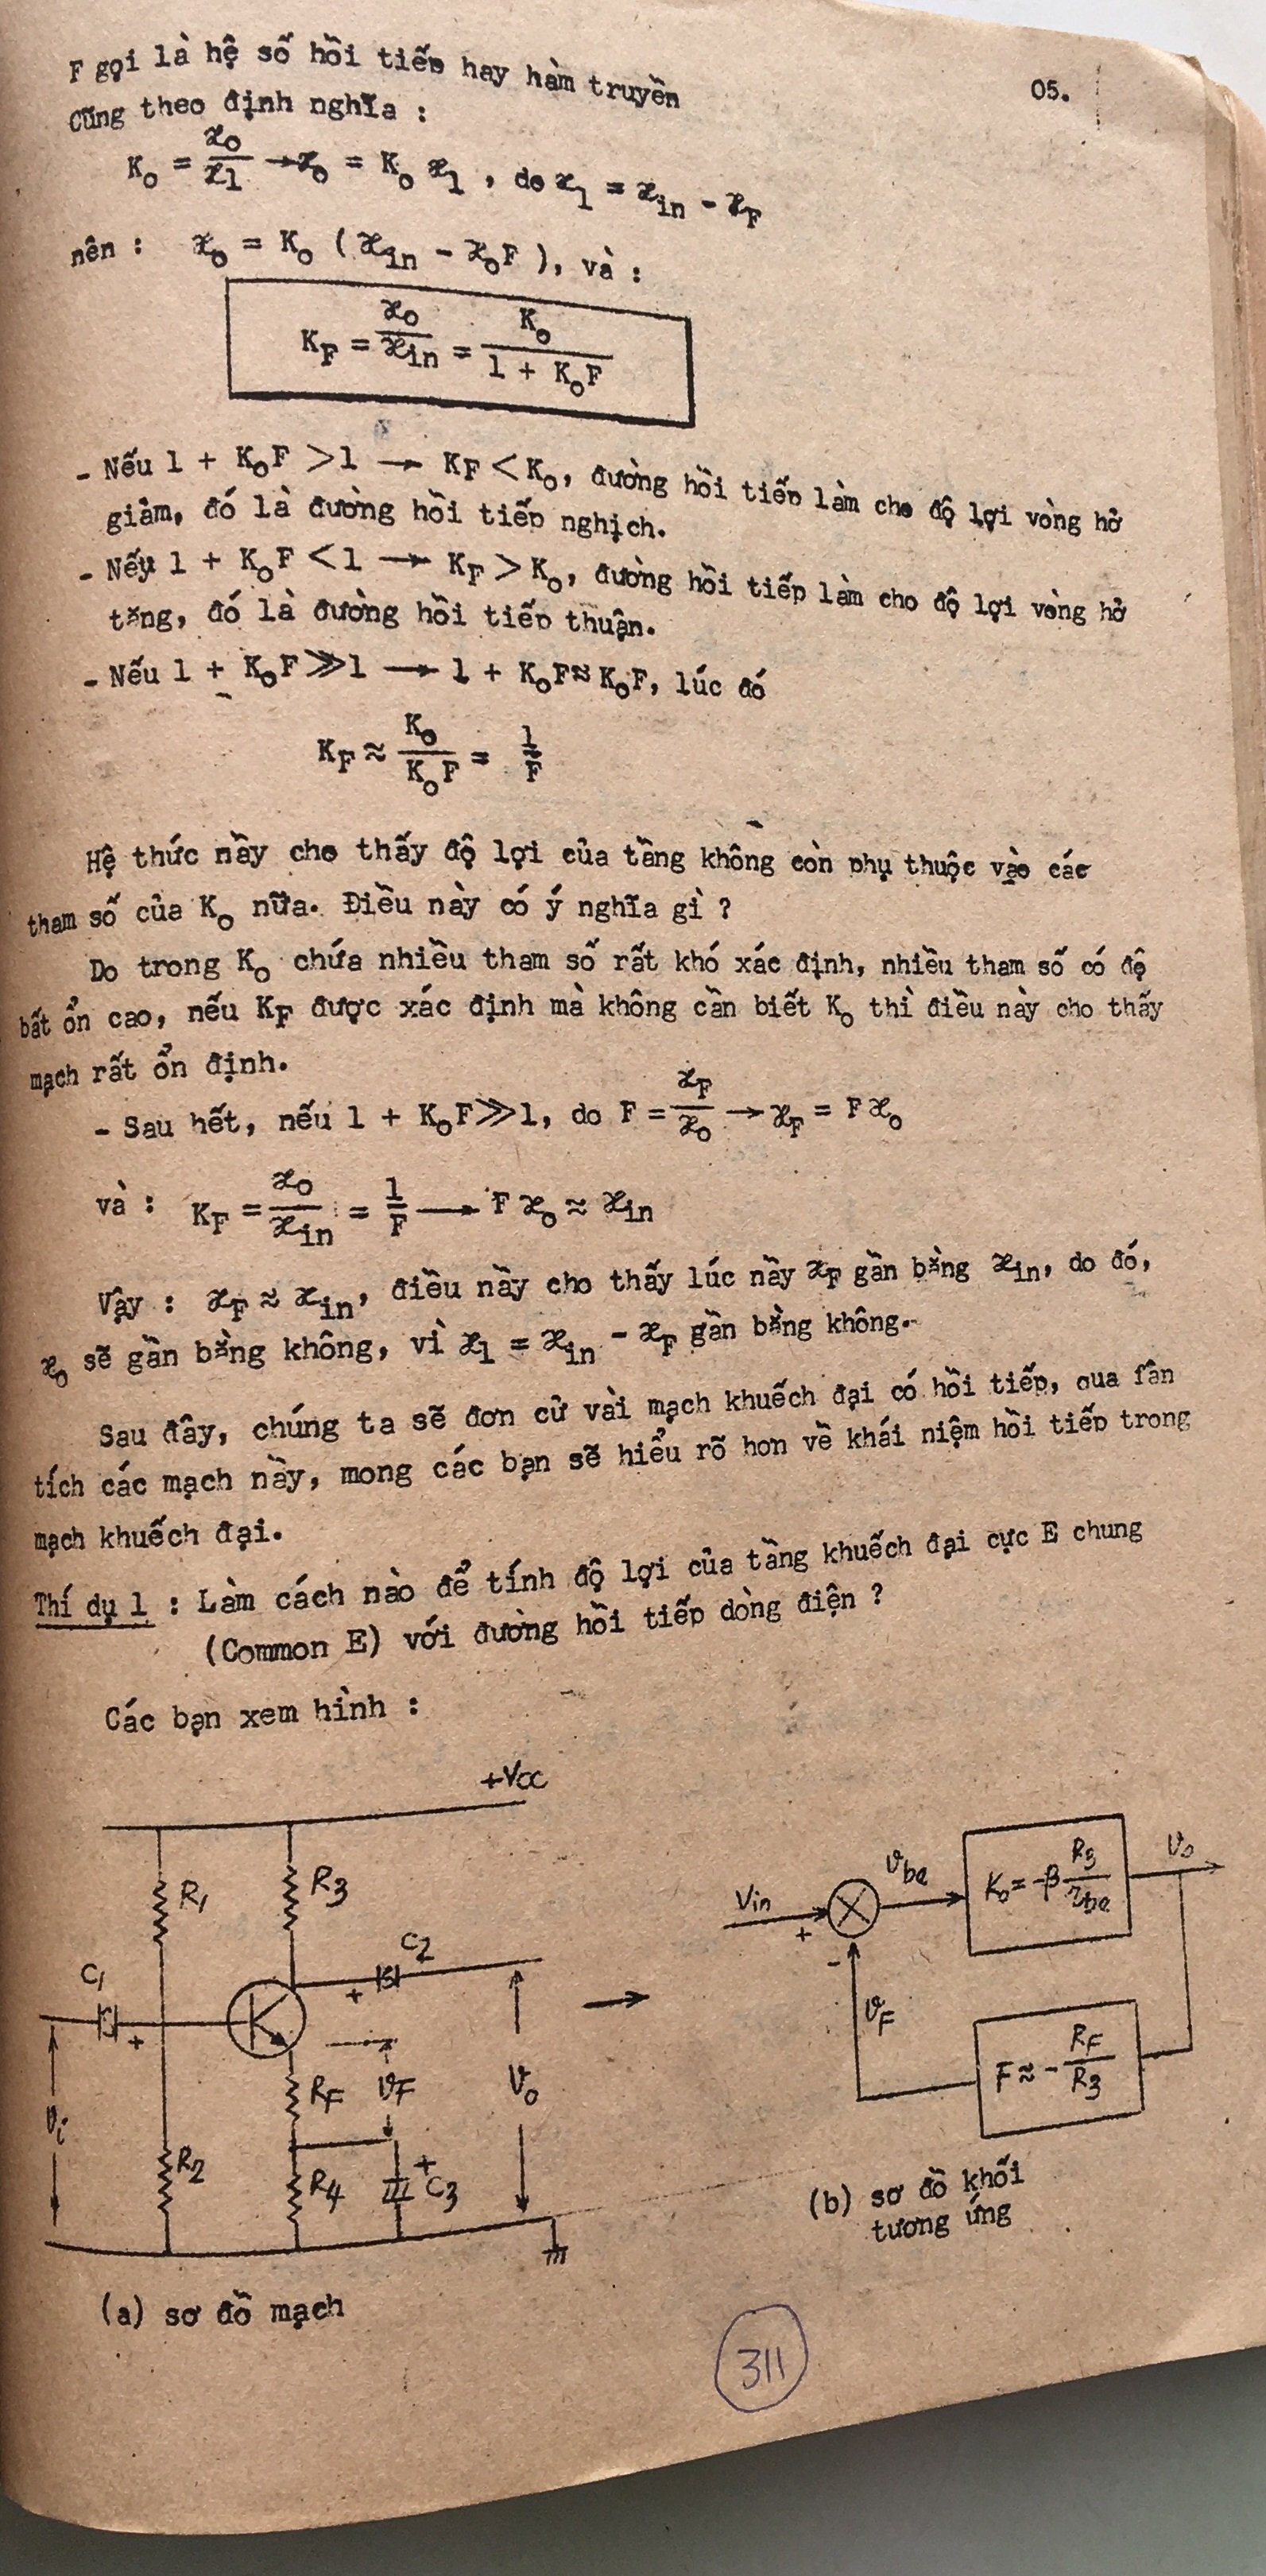 F gọi là hệ số hồi tiếp hay hàm truyền
05.
Cũng theo định nghĩa :
K₀ = x₀/x₁ → x₀ = K₀ x₁ , do x₁ = xᵢₙ - x_F
nên : x₀ = K₀ ( xᵢₙ - x₀F ), và :
K_F = x₀/xᵢₙ = K₀/(1 + K₀F)
- Nếu 1 + K₀F > 1 → K_F < K₀, đường hồi tiếp làm cho độ lợi vòng hở
giảm, đó là đường hồi tiếp nghịch.
- Nếu 1 + K₀F < 1 → K_F > K₀, đường hồi tiếp làm cho độ lợi vòng hở
tăng, đó là đường hồi tiếp thuận.
- Nếu 1 + K₀F ≫ 1 → 1 + K₀F ≈ K₀F, lúc đó
K_F ≈ K₀/(K₀F) = 1/F
Hệ thức nầy cho thấy độ lợi của tầng không còn phụ thuộc vào các
tham số của K₀ nữa. Điều này có ý nghĩa gì ?
Do trong K₀ chứa nhiều tham số rất khó xác định, nhiều tham số có độ
bất ổn cao, nếu K_F được xác định mà không cần biết K₀ thì điều này cho thấy
mạch rất ổn định.
- Sau hết, nếu 1 + K₀F ≫ 1, do F = x_F/x₀ → x_F = F x₀
và : K_F = x₀/xᵢₙ = 1/F → F x₀ ≈ xᵢₙ
Vậy : x_F ≈ xᵢₙ, điều nầy cho thấy lúc nầy x_F gần bằng xᵢₙ, do đó,
x₀ sẽ gần bằng không, vì x₁ = xᵢₙ - x_F gần bằng không.
Sau đây, chúng ta sẽ đơn cử vài mạch khuếch đại có hồi tiếp, qua fân
tích các mạch nầy, mong các bạn sẽ hiểu rõ hơn về khái niệm hồi tiếp trong
mạch khuếch đại.
Thí dụ 1 : Làm cách nào để tính độ lợi của tầng khuếch đại cực E chung
(Common E) với đường hồi tiếp dòng điện ?
Các bạn xem hình :
+Vcc
R1
R3
C1
+
C2
+
R_F
v_F
V₀
vᵢ
R2
R4
+
C3
(a) sơ đồ mạch
Vin
+
-
v_be
K₀ = -β R3/r_be
V₀
v_F
F ≈ - R_F/R3
(b) sơ đồ khối
tương ứng
311